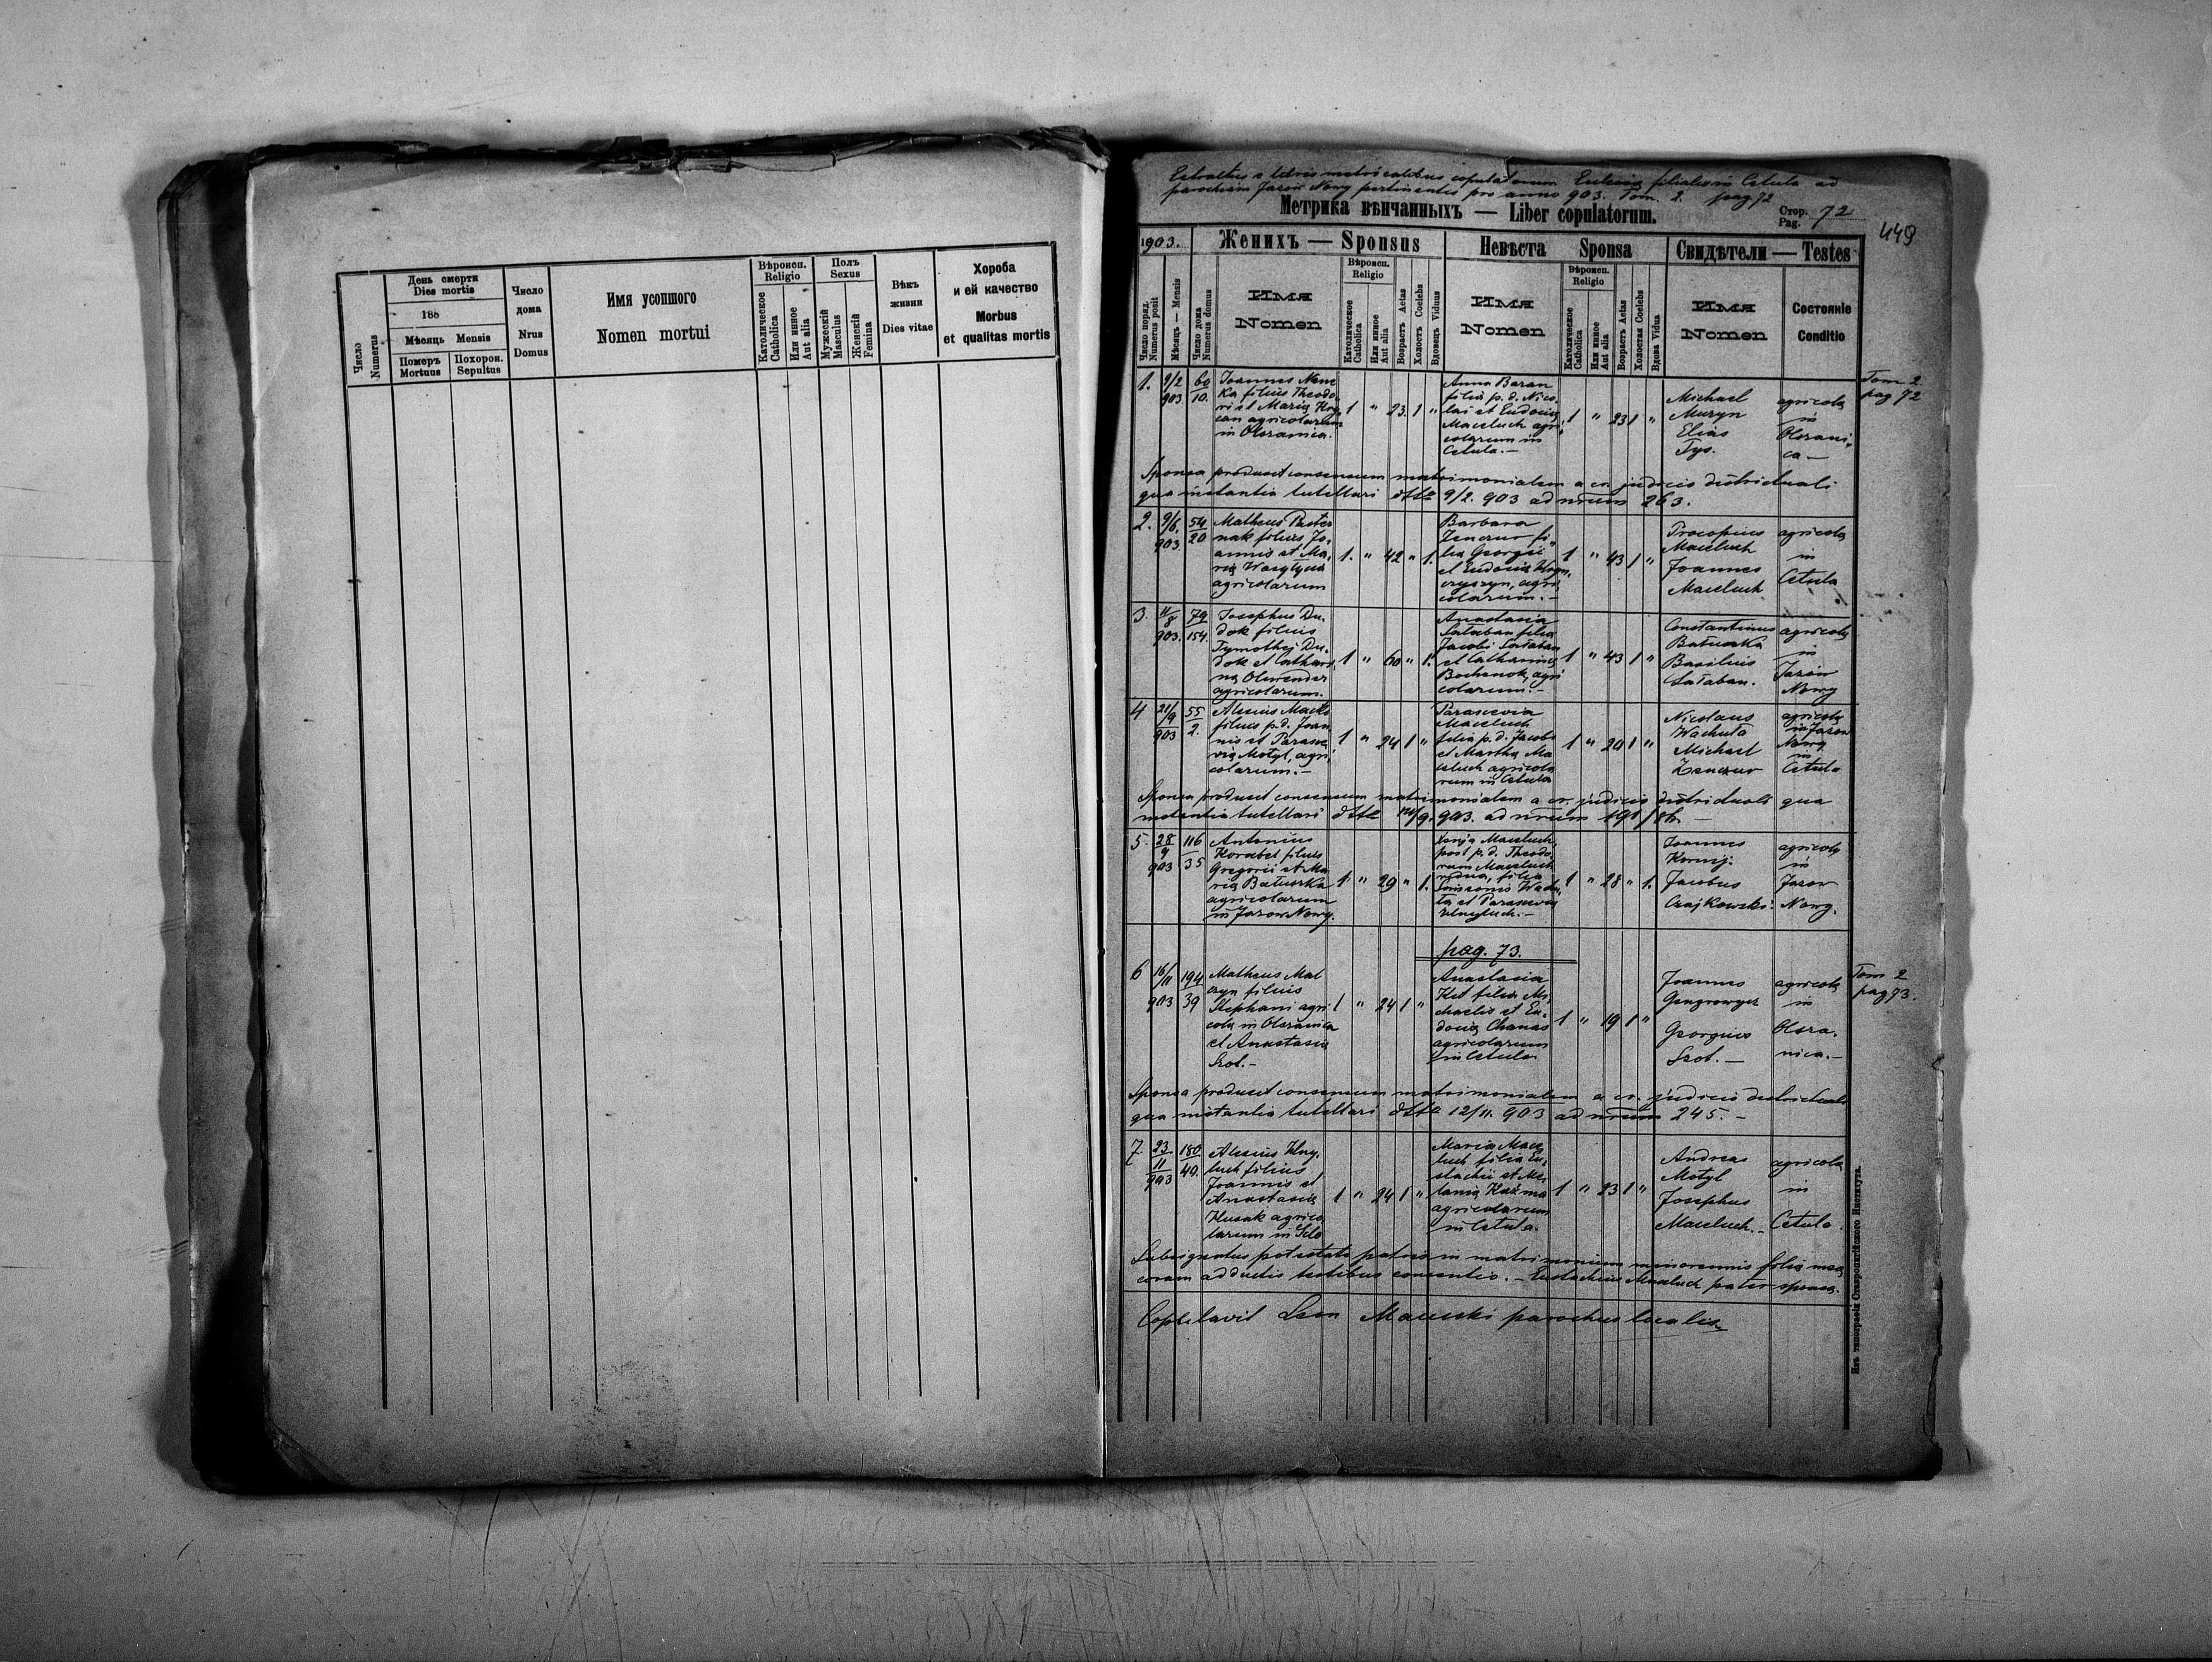 День смерти
Dies mortis
188
Мѣсяць Mensis
Померъ
Mortuus
Похорон.
Sepultus
Число
Numerus
Число
дома
Nrus
Domus
Имя усопшого
Nomen mortui
Вѣроисп.
Religio
Католическое
Catholica
Или инное
Aut alia
Полъ
Sexus
Мужескій
Masculus
Женскій
Femina
Вѣкъ
жизни
Dies vitae
Хороба
и ей качество
Morbus
et qualitas mortis
Extractus e libris metricalibus copulatorum Ecclesiae filialis in Cetula ad
parochiam Jazów Nowy pertinentis pro anno 903. Tom. 2. pag 72
Метрика вѣнчанныхъ — Liber copulatorum.
Стор.
Pag. 72
449
1903.
Женихъ — Sponsus
Невѣста Sponsa
Свидѣтели — Testes
Число поряд.
Numerus posit
Мѣсяць — Mensis
Число дома
Numerus domus
Имя
Nomen
Вѣроисп.
Religio
Католическое
Catholica
Или инное
Aut alia
Возрастъ Aetas
Холостъ Coelebs
Вдовецъ Viduus
Имя
Nomen
Вѣроисп.
Religio
Католическое
Catholica
Или инное
Aut alia
Возрастъ Aetas
Холостая Coelebs
Вдова Vidua
Имя
Nomen
Состояніе
Conditio
1. 9/2 903 60/10.
Joannes
filius Theodo-
ri et Maria
agricolarum
in Olszanica.
1 " 23. 1 "
Anna Baran
filia p. d. Nico-
lai et Eudocia
Maceluch agri-
colarum in
Cetula.—
1 " 23 1 "
Michael
Muzyn
Elias
Tys.
agricolae
in
Olszani-
ca.—
Tom 2
pag 72
Sponsa produxit consensum matrimonialem a cr. judicio districtuali
qua instantia tutellari dtto 9/2. 903 ad nrum 263.
2. 9/6. 903. 54/20
Matheus Paster
nak filius Jo-
annis et Ma-
ria
agricolarum
1. " 42 " 1.
Barbara
Zenczur fi-
lia Georgii
et Eudocia
agri-
colarum.—
1 " 43 1 "
Procopius
Maceluch
Joannes
Maceluch
agricolae
in
Cetula
3. 11/8 903. 79/154.
Josephus Du-
dok filius
Tymothej Du-
dok et Cathari-
na
agricolarum.
1 " 60 " 1.
Anastasia
Sałaban filia
Jacobi Sałaban
et Catharina
Bochonok, agri
colarum.—
1 " 43 1 "
Constantinus
Batiuszka
Basilius
Sałaban.
agricolae
in
Jazów
Nowy
4 21/9 903 55/2.
Alexius
filius p. d. Joan
nis et Parasce
via Motyl, agri-
colarum.—
1 " 24 1 "
Parascevia
Maceluch
filia p. d. Jacobi
et Martha Ma
celuch agricola
rum in Cetula
1 " 20 1 "
Nicolaus
Wachuta
Michael
Zenczur
agricolae
in Jazow
Nowy
in
Cetula
Sponsa produxit consensum matrimonialem a cr. judicio districtuali qua
instantia tutellari dtto 903. ad nrum
5. 28/9 903 116/35
Antonius
Korabel filius
Gregorii et Ma
ria Batiuszka
agricolarum
in Jazow Nowy.
1. " 29 " 1.
Maceluch
post p. d. Theodo
rum Maceluch
vidua, filia
et Parascevia
1 " 28 " 1.
Joannes
Kornij.
Jacobus
Czajkowski.
agricolae
in
Jazow
Nowy.
pag. 73.
6 16/11 903 194/39
Matheus Mal
czyn filius
Stephani agri
cola in Olszanica
et Anastasia
Szot.—
1 " 24 1 "
Anastasia
filia Mi-
chaelis et Eu-
docia Chanas
agricolarum
in Cetula
1 " 19 1 "
Joannes
Georgius
Szot.—
agricolae
in
Olsza-
nica.—
Tom 2
pag 73.
Sponsa produxit consensum matrimonialem a cr. judicio districtuali
qua instantia tutellari dtto 12/11. 903 ad nrum 245.—
7. 23/11 903 180/49.
Alexius
filius
Joannis et
Anastasia
Husak agrico
larum in
1 " 24 1 "
Maria Mace
luch filia Eu-
stachii et Me-
lania
agricolarum
in Cetula.
1 " 23 1 "
Andreas
Motyl
Josephus
Maceluch.—
agricolae
in
Cetula.
Subsignatus potestate patria in matrimonium minorennis filia mea
coram adductis testibus consentio.— Eustachius Maceluch pater sponsa.
Copulavit Leon parochus localis
Изъ типографіи Ставропигійского Института.